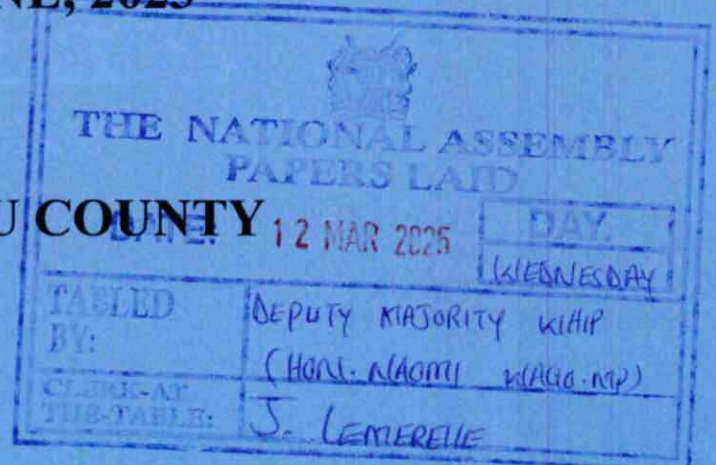 NE, 2023
THE NATIONAL ASSEMBLY
PAPERS LAID
U COUNTY
DATE: 12 MAR 2025
DAY.
WEDNESDAY
TABLED BY:
DEPUTY MAJORITY WHIP
(HON. NAOMI WAQO. MP)
CLERK-AT THE-TABLE:
J. LEMERELLE